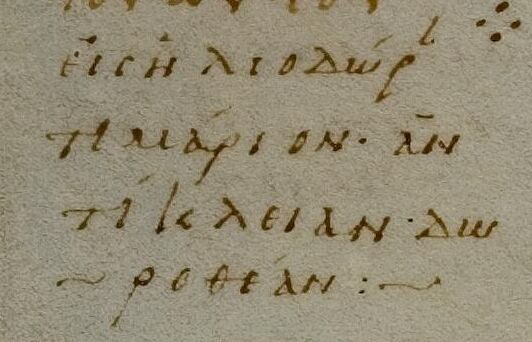 εἰς ἡλιοδώρ
τιμάριον· ἀν
τίκλειαν· δω
~ ροθέαν :~